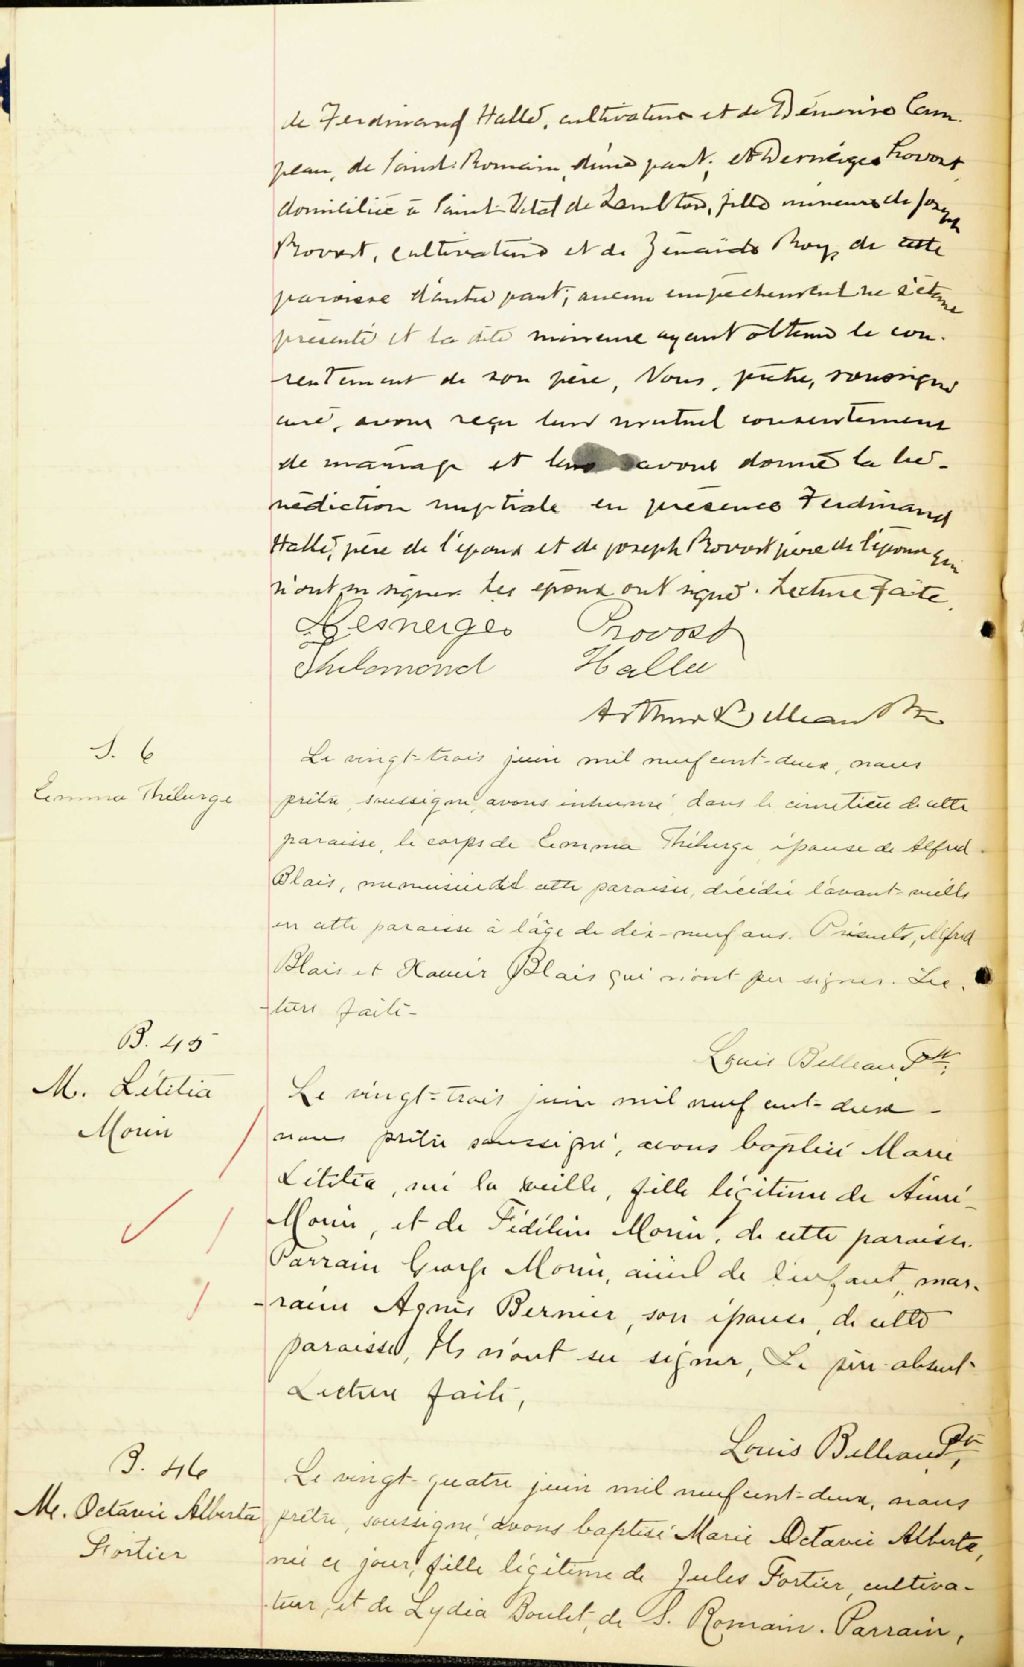 de Ferdinand Hallé, cultivateur et de Démerise Cam-
peau, de Saint-Romain, d'une part; et Desneiges Provost,
domiciliée à Saint-Vital de Lambton, fille mineure de Joseph
Provost, cultivateur et de Zénaïde Roy, de cette
paroisse d'autre part; aucun empêchement ne s'étant
présenté et la dite mineure ayant obtenu le con-
sentement de son père, Nous, prêtre, soussigné
curé, avons reçu leur mutuel consentement
de mariage et leur avons donné la bé-
nédiction nuptiale en présence Ferdinand
Hallé, père de l'époux et de Joseph Provost père de l'épouse qui
n'ont su signer. Les époux ont signé. Lecture faite.
Desneiges Provost
Philemond Hallee
Arthur Belleau Ptre
S. 6
Emma Théberge
Le vingt-trois juin mil neuf cent-deux, nous
prêtre, soussigné, avons inhumé, dans le cimetière de cette
paroisse, le corps de Emma Théberge, épouse de Alfred
Blais, menuisier de cette paroisse, décédée l'avant-veille
en cette paroisse à l'âge de dix-neuf ans. Présents, Alfred
Blais et Xavier Blais qui n'ont pu signer. Lec-
-ture faite-
Louis Belleau Ptre
B. 45
M. Létitia
Morin
Le vingt-trois juin mil neuf cent-deux -
nous prêtre soussigné, avons baptisé Marie
Létitia, née la veille, fille légitime de Aimé-
Morin, et de Fédéline Morin, de cette paroisse.
Parrain George Morin, aïeul de l'enfant, mar-
-raine Agnès Bernier, son épouse, de cette
paroisse, Ils n'ont su signer, Le père absent-
Lecture faite,
Louis Belleau Ptre
B. 46
M. Octavie Alberta
Fortier
Le vingt-quatre juin mil neuf cent-deux, nous
prêtre, soussigné, avons baptisé Marie Octavie Alberta,
née ce jour, fille légitime de Jules Fortier, cultiva-
-teur, et de Lydia Boulet, de S. Romain. Parrain,